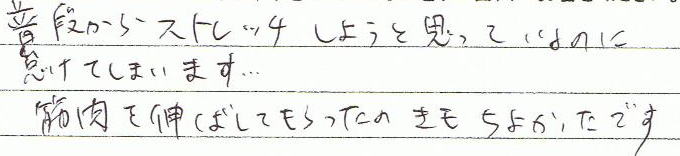 普段からストレッチしようと思っているのに
怠けてしまいます…
筋肉を伸ばしてもらったのきもちよかったです